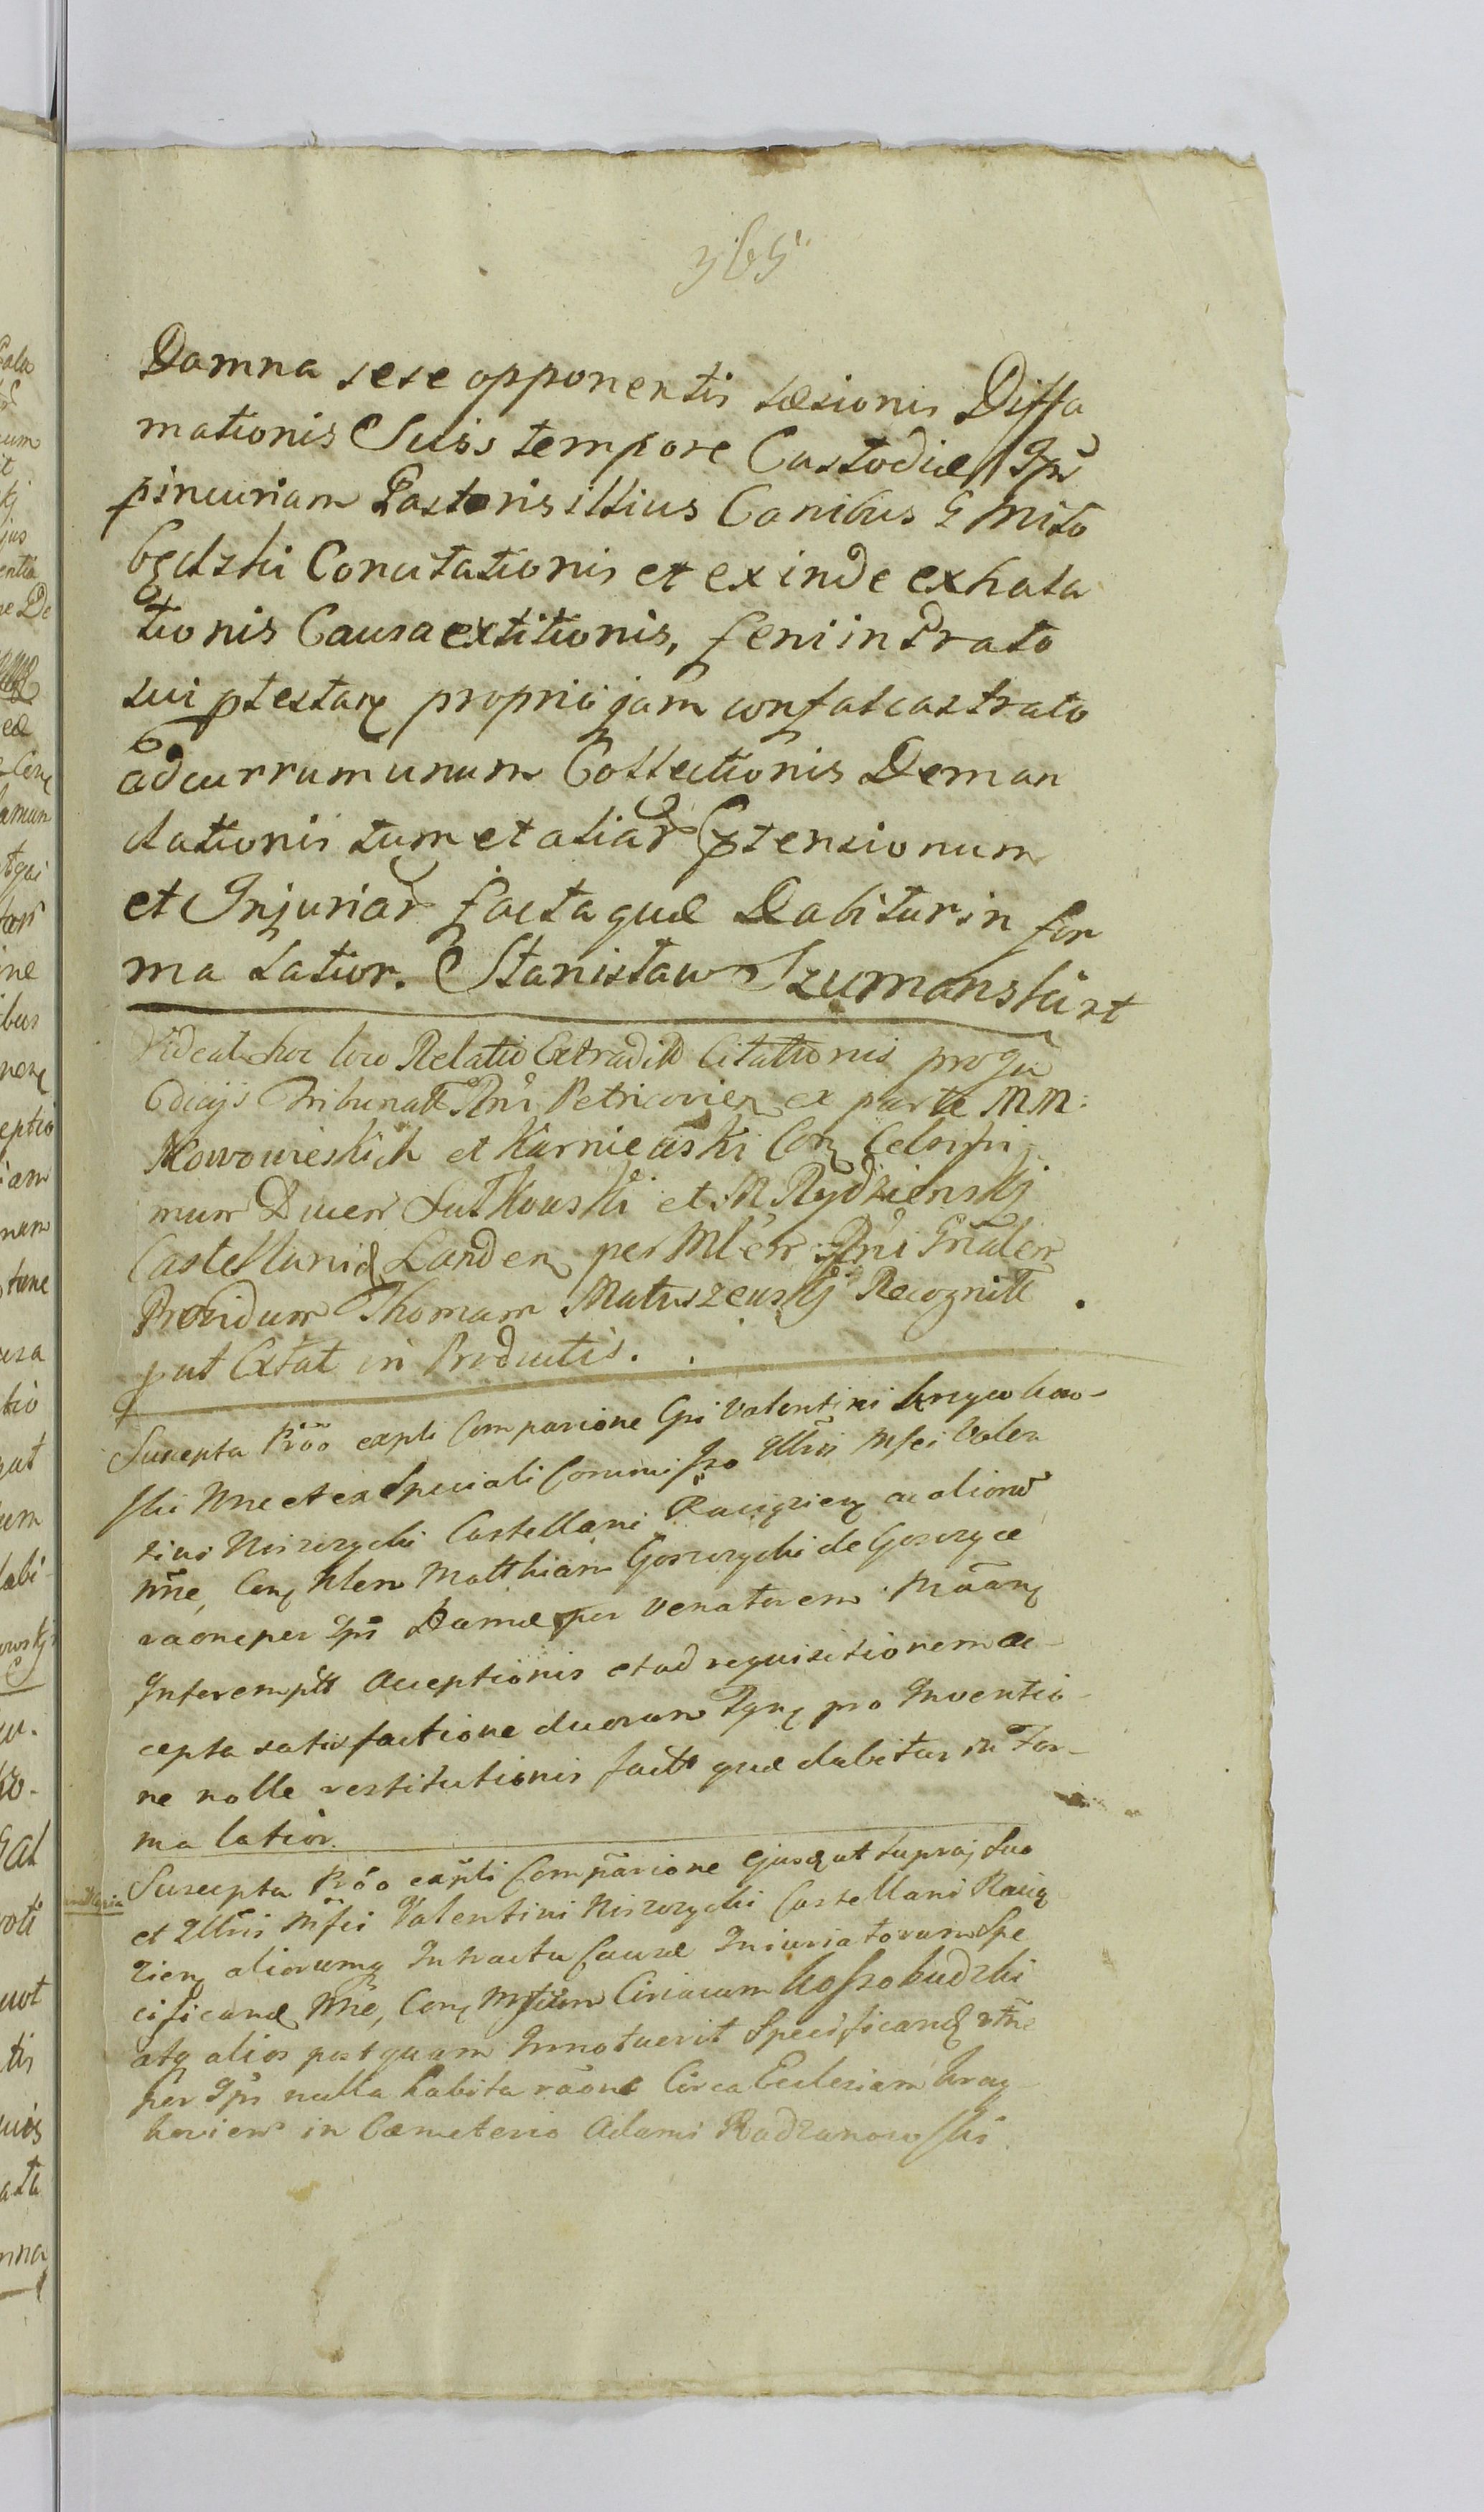 365
Damna sese opponentis læsionis Diffa
mationis Suis tempore Custodiæ Ipĩ
pincuriam Pastoris illius Canibus G Miło
będzki Concitationis et exinde exhala
tionis Causa extitionis, feni in Prato
sui ptestan proprio jam confalcastrato
ad currum unum Collectionis Deman
dationis tum et aliar ptensionum
et Injuriar facta quæ Dabitur in for
ma latior. Stanisław Szumanski rt
Videat hoc loco Relatio Extradit Citationis pro Ju
diciis Tribunall Rni Petricovien ex parte MM:
Nowowieskich et Karnieaski Con Celsissi
mum Ducem Sułkowski et M Rydzienskj
Castellanid Landen per Mlen Rni Gnalen
Providum Thomam Matuszewskj Recognitt
put Extat in Productis.
Suscepta Prõo expli Comparione Gsi Valentini Krzywkow-
ski Nne et ex Speciali Commisso Illris Mfci Valen
tini Niszczycki Castellani Raciązien ac aliorũ
Nne, Con Nlem Matthiam Gorczycki de Gorczyce
raone per Ipũ Damæ per Venatorem Mãan
Interemptæ Acceptionis et ad requisitionem ac-
cepta satisfactione duorum Tyn pro Inventio-
ne nolle restitutionis facta quæ dabitur in For-
ma latior.
Suscepta Prõo expli Compãrione Ejusd ut supra, suo
et Illris Mfci Valentini Niszczycki Castellani Racią
zien aliorumq In tractu Causæ Iniuriatorum Spe
cificand Nne, Con Mfcum Ciriacum Kossobudzki
atq alios postquam Innotuerit Specificand
per Ipũ nulla habita raone Circa Ecclesiam
in Cæmeterio Adami Radzanowski